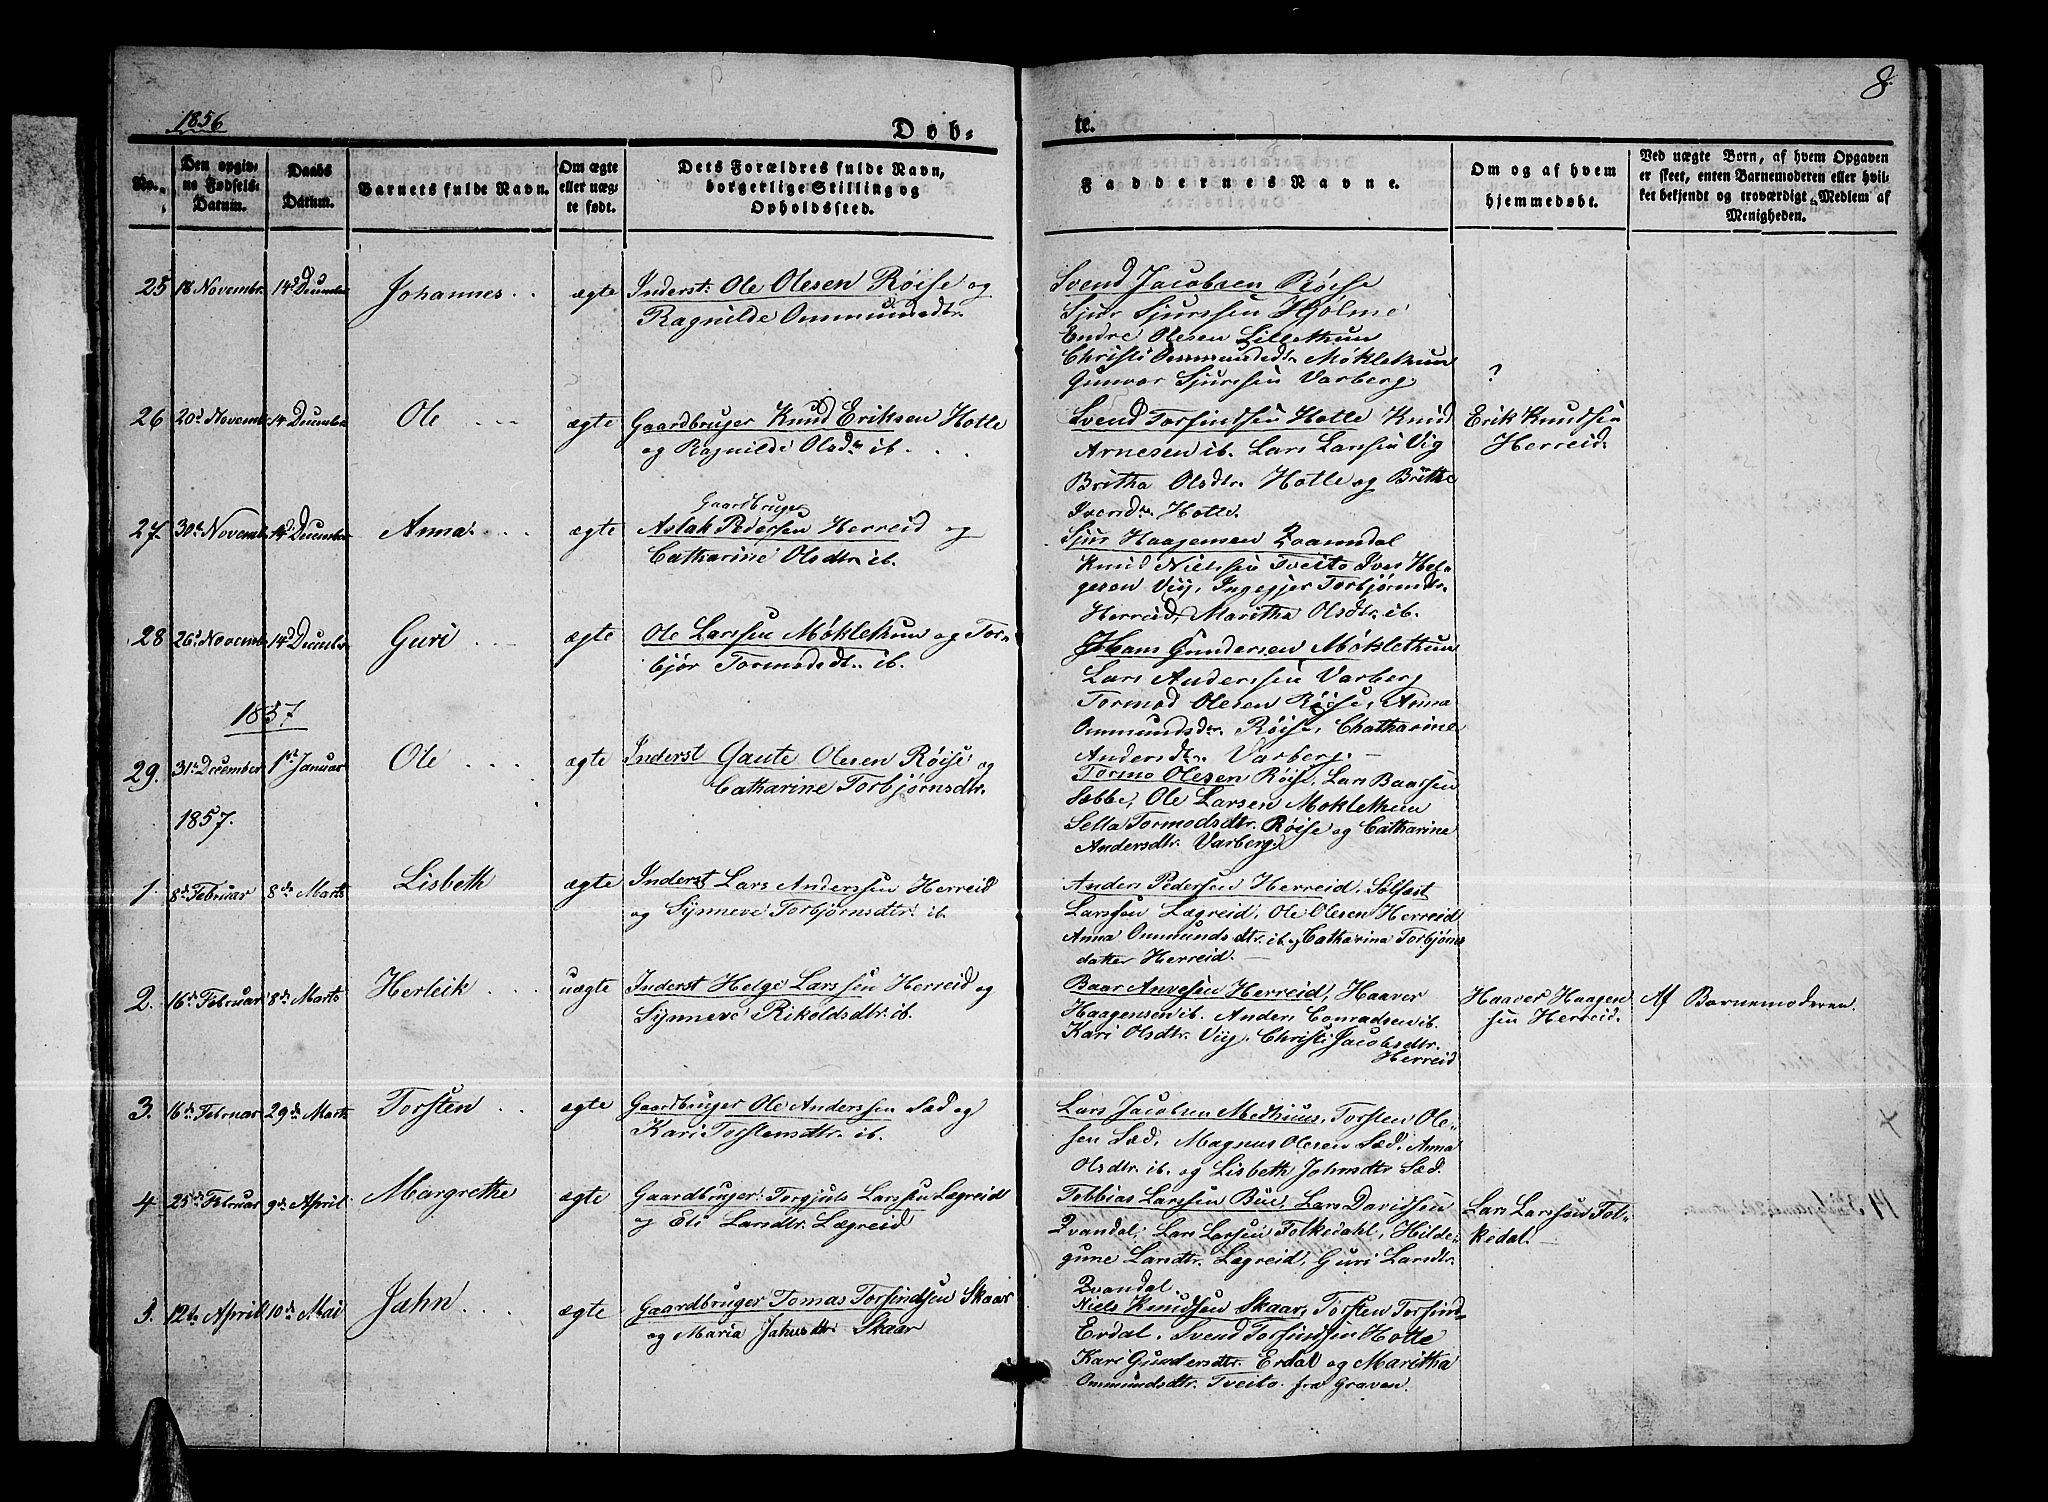 1856
8.
Døb-
te.
No.
Den opgiv-
ne Fødsels-
Datum.
Daabs
Datum.
Barnets fulde Navn.
Om ægte
eller uæg-
te født.
Dets Forældres fulde Navn,
borgerlige Stilling og
Opholdssted.
Faddernes Navne.
Om og af hvem
hjemmedøbt.
Ved uægte Børn, af hvem Opgaven
er skeet, enten Barnemoderen eller hvil-
ket bekjendt og troværdigt Medlem af
Menigheden.
25 18 Novembr. 14d Decembr Johannes ægte Inderst: Ole Olesen Røise og
Ragnilde Ommundsdtr.
Svend Jacobsen Røise
Sjur Sjurssen Hjølme
Endre Olesen Lillethun
Christi Ommundsdtr. Møklethun
Gunvor Sjurssen Varberg.
?
26 20d Novemb. 14 Decembr Ole ægte Gaardbruger Knud Eriksen Hotle
og Ragnilde Olsdtr ib.
Svend Torfindsen Hotle Knud
Arnesen ib. Lars Larssen Vig
Britha Olsdtr. Hotle og Brithe
Ivensdtr. Hotle.
Erik Knudsen
Herreid.
27. 30te Novemb. 14d December Anna ægte Gaardbruger
Aslak Pedersen Herreid og
Catharine Olsdtr. ib.
Sjur Haagensen Qvamdal
Knud Nielssen Tveito Iver Hel-
gesen Viij, Ingegjer Torbjørnsd.
Herreid, Maritha Olsdtr. ib.
28 26d Novemb 14d Decembr Guri ægte Ole Larssen Møklethun og Tor-
bjør Tormodsdt. ib.
Hans Gundersen Møklethun
Lars Anderssen Varberg
Tormod Olesen Røise, Anna
Ommundsdtr. Røise, Chatharine
Andersdtr. Varberg.
1857
29. 31te December 1ste Januar Ole ægte Inderst Gaute Olesen Røise og
Catharine Torbjørnsdtr.
Tormo Olesen Røise, Lars Baarsen
Sæbbe, Ole Larsen Møklethun
Sella Tormodsdtr. Røise og Catharine
Andersdtr. Varberg.
1857.
1. 8de Februar 8de Marts Lisbeth ægte Inderst Lars Anderssen Herreid
og Synneve Torbjørnsdtr. ib.
Anders Pedersen Herreid, Sølfæst
Larssen Lægreid, Ole Olesen Herreid
Anna Ommundsdtr. ib. og Catharina Torbjørns
datter Herreid.
2. 16de Februar 8de Marts Herleik uægte Inderst Helge Larssen Herreid og
Synneve Rikoldsdtr. ib.
Baar Anvesen Herreid, Haaver
Haagensen ib. Anders Conradsen ib.
Kari Olsdtr. Viij, Christi Jacobsdtr.
Herreid
Haaver Haagen
sen Herreid.
Af Barnemoderen.
3. 16de Februar 29de Marts Torsten ægte Gaardbruger Ole Anderssen Sæd og
Kari Torstensdtr. ib.
Lars Jacobsen Medhuus, Torsten Ole-
sen Sæd, Magnus Olesen Sæd, Anna
Olsdtr. ib. og Lisbeth Johnsdtr Sæd.
4 25de Februar 9de April Margrethe ægte Gaardbruger Torgjuls Larssen Lægreid
og Eli Larsdtr. Lægreid
Tobbias Larssen Bue, Lars Davidsen
Qvandal, Lars Larsen Folkedahl, Hilde-
gune Larsdtr. Lægreid, Guri Larsdtr.
Qvandal.
Lars Larssen Fol-
kedal.
5. 12te April 10de Mai Jahn ægte Gaardbruger Tomas Torfindsen Skaar
og Maria Jahnsdtr. Skaar
Niels Knudsen Skaar, Torsten Torfind-
Erdal, Svend Torfindsen Hotle
Kari Gundersdtr. Erdal og Maritha
Ommundsdtr. Tveito fra Graven.